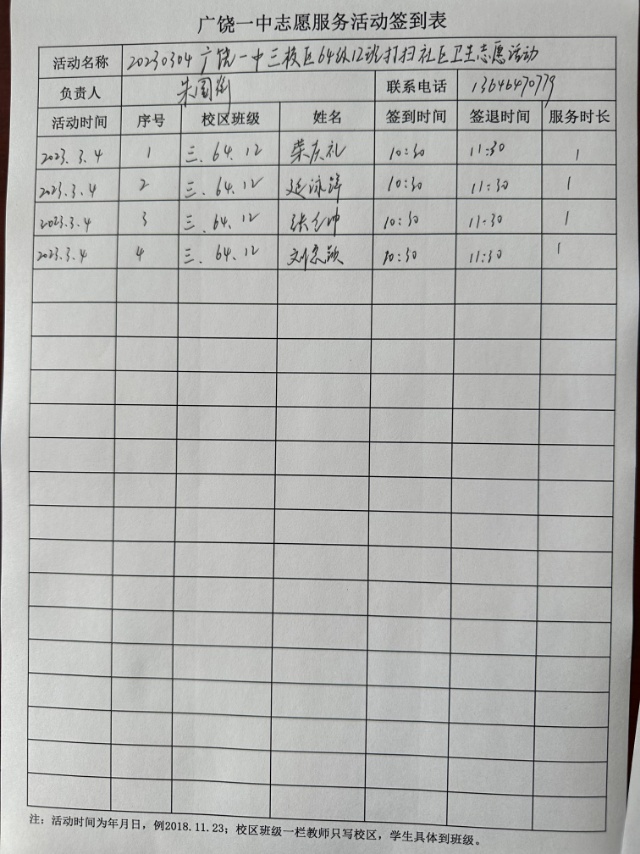 广饶一中志愿服务活动签到表
活动名称 20230304广饶一中三校区64级12班打扫社区卫生志愿活动
负责人 联系电话 13646470779
活动时间 序号 校区班级 姓名 签到时间 签退时间 服务时长
2023.3.4 1 三.64.12 荣庆礼 10:30 11:30 1
2023.3.4 2 三.64.12 10:30 11:30 1
2023.3.4 3 三.64.12 10:30 11:30 1
2023.3.4 4 三.64.12 10:30 11:30 1
注：活动时间为年月日，例2018.11.23；校区班级一栏教师只写校区，学生具体到班级。